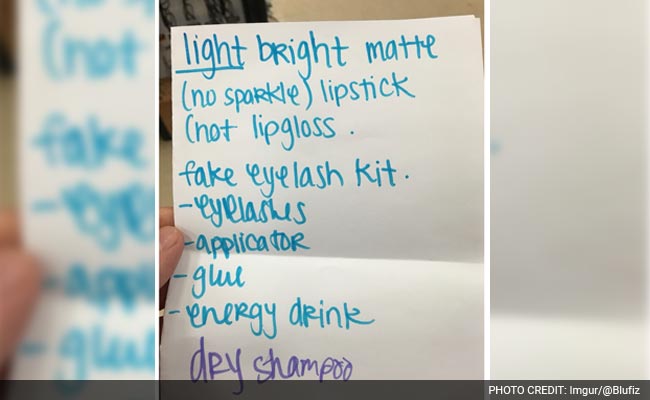 light bright matte
(no sparkle) lipstick
(not lipgloss .
fake eyelash kit.
-eyelashes
-applicator
-glue
-energy drink
dry shampoo
PHOTO CREDIT: Imgur/@Blufiz